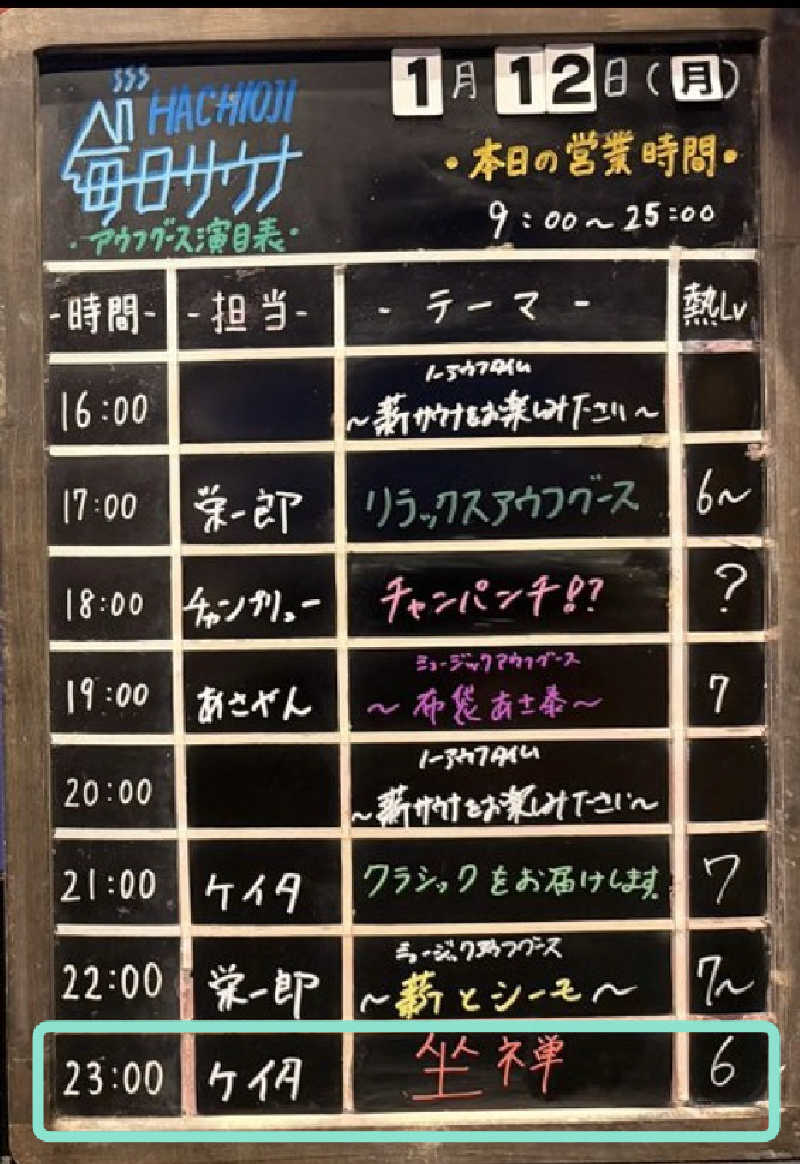 1月 12日(月)
HACHIOJI
毎日サウナ
・アウフグース演目表・
・本日の営業時間・
9:00〜25:00
-時間- -担当- -テーマ- 熱Lv
16:00 ノーアウフタイム
〜薪サウナをお楽しみ下さい〜
17:00 栄一郎 リラックスアウフグース 6〜
18:00 チャンプリュー チャンパンチ!? ?
19:00 あさやん ミュージックアウフグース
〜布袋あさ泰〜 7
20:00 ノーアウフタイム
〜薪サウナをお楽しみ下さい〜
21:00 ケイタ クラシックをお届けします。 7
22:00 栄一郎 ミュージックアウフグース
〜薪とシーモ〜 7〜
23:00 ケイタ 坐禅 6